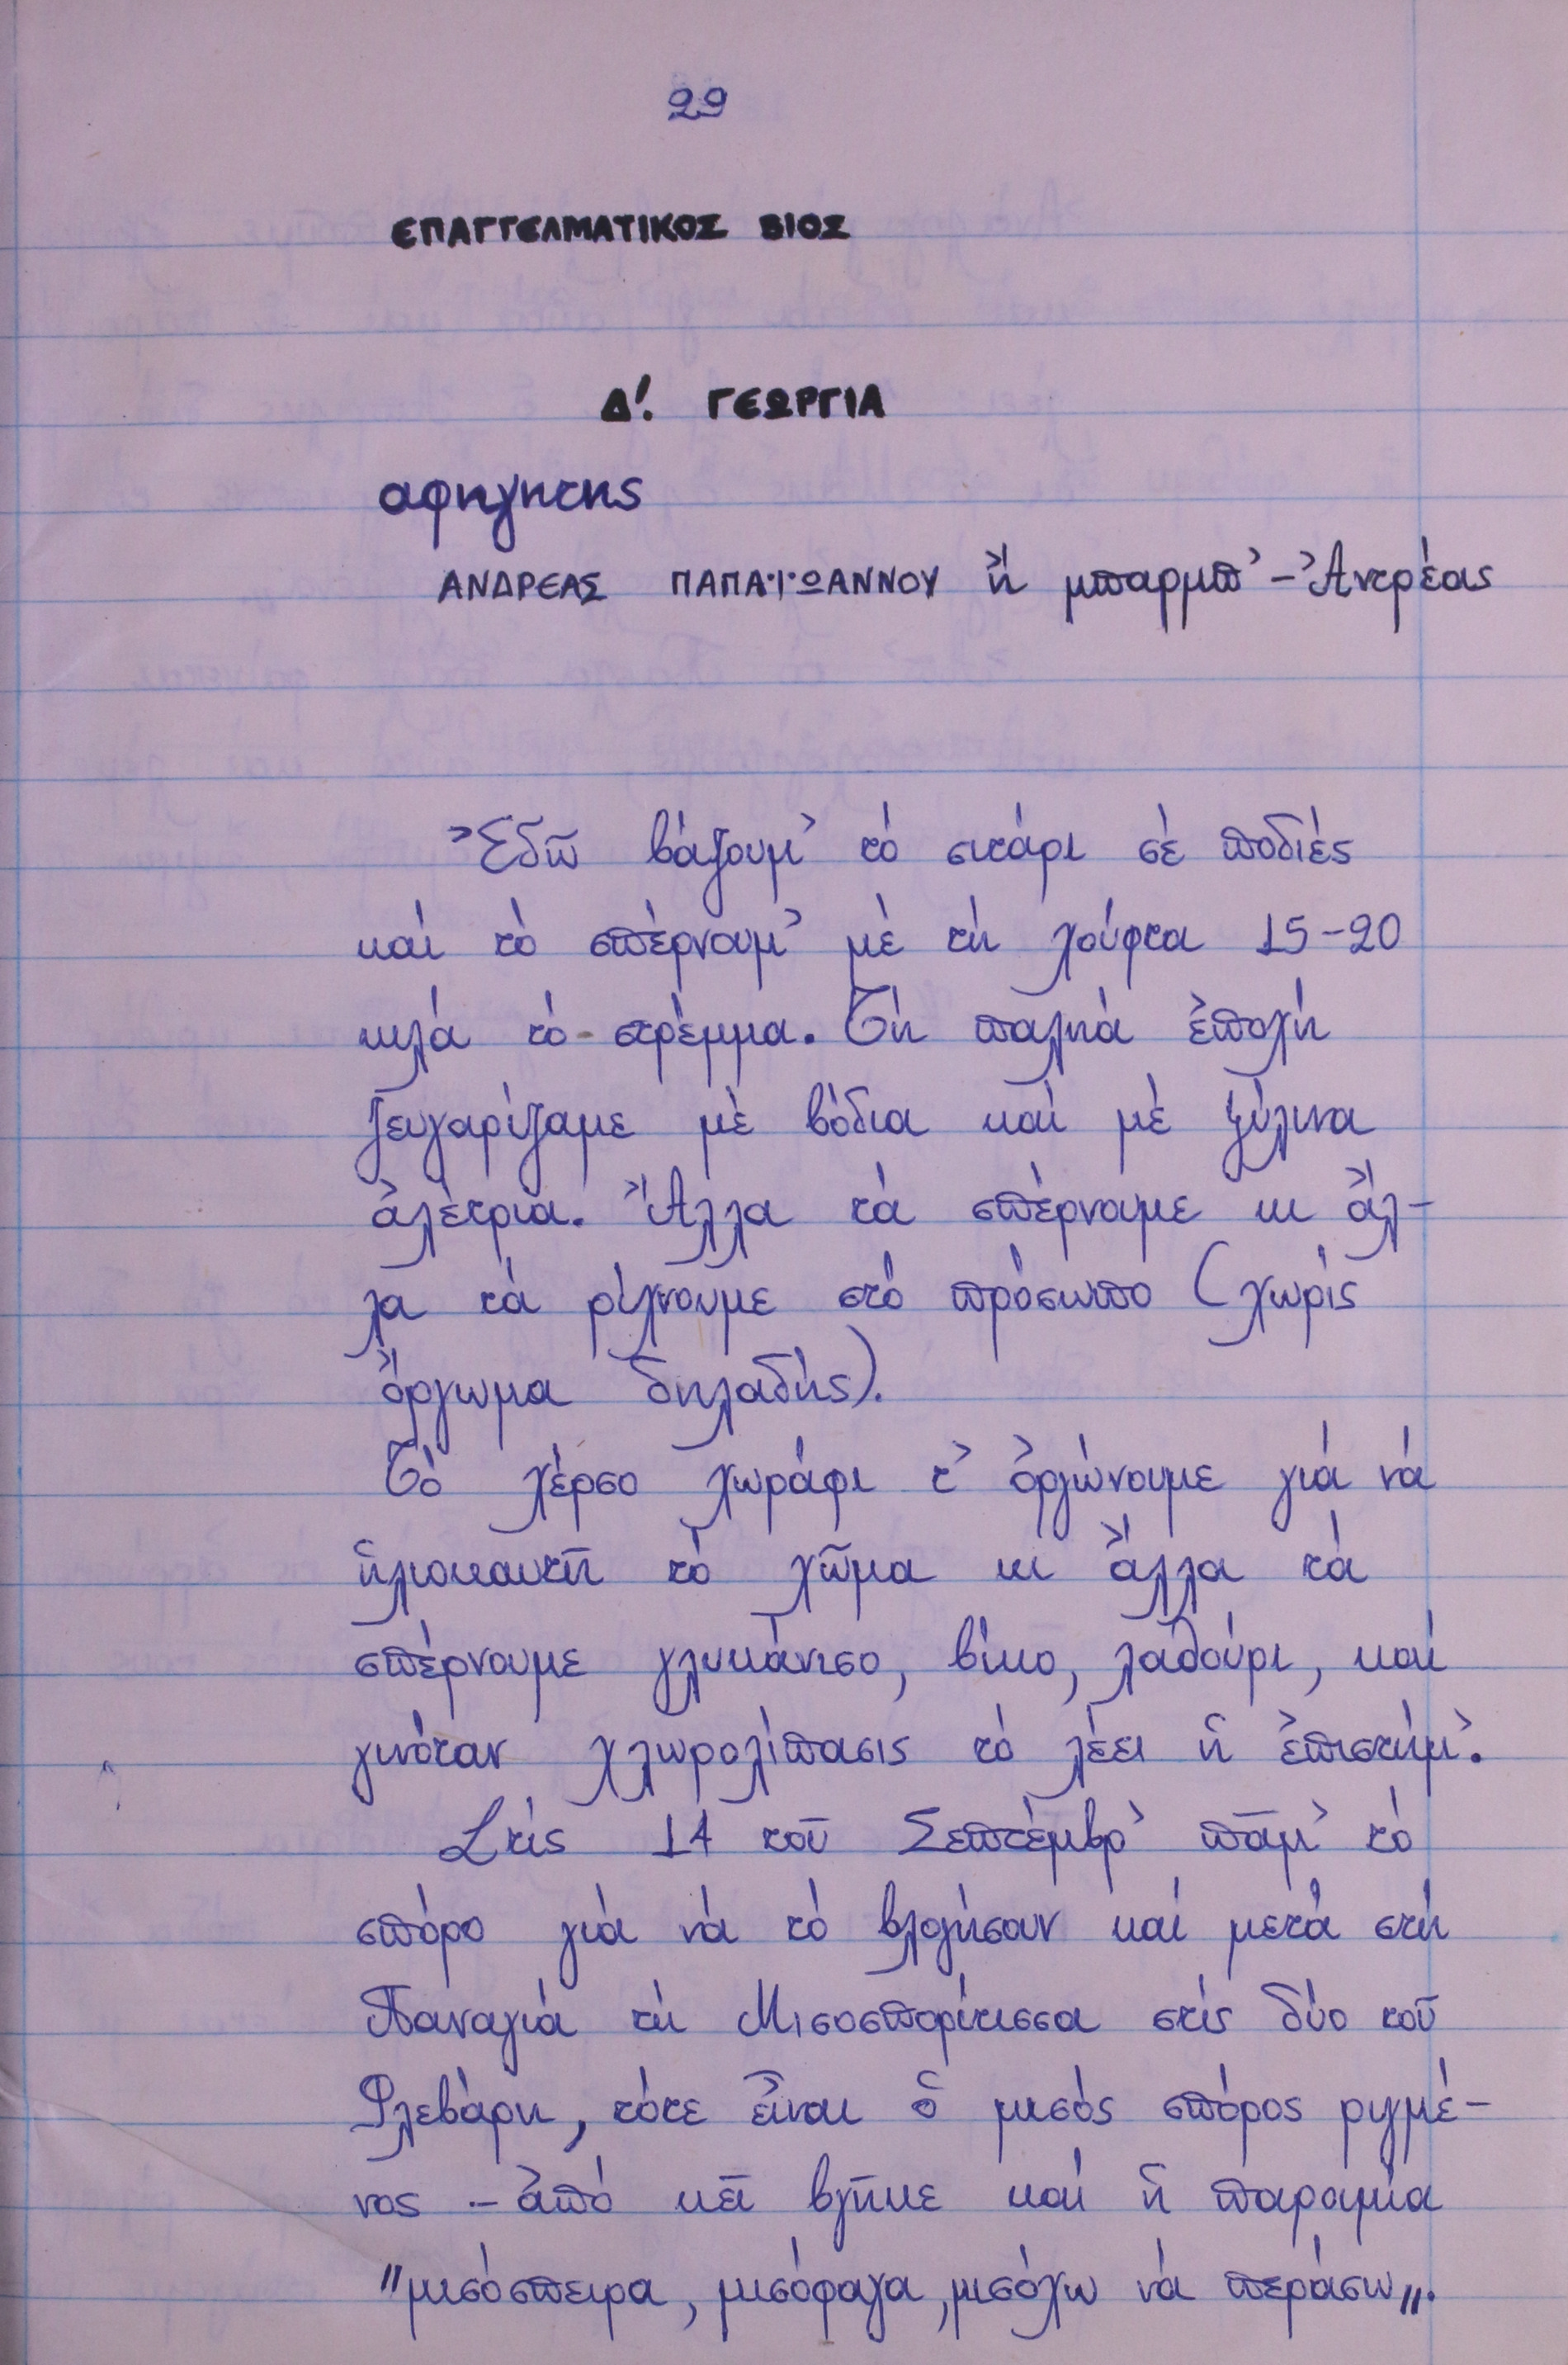 29
ΕΠΑΓΓΕΛΜΑΤΙΚΟΣ ΒΙΟΣ
Δ'. ΓΕΩΡΓΙΑ
αφηγητης
ΑΝΔΡΕΑΣ ΠΑΠΑΪΩΑΝΝΟΥ ἤ μπαρμπ' - Ἀντρέας
Ἐδῶ βάζουμ' τό σιτάρι σέ ποδιές
καί τό σπέρνουμ' μέ τή χούφτα 15-20
κιλά τό στρέμμα. Τή παληά ἐποχή
ζευγαρίζαμε μέ βόδια καί μέ ξύλινα
ἀλέτρια. Ἄλλα τά σπέρναμε κι ἄλ-
λα τά ρίχνουμε στό πρόσωπο (χωρίς
ὄργωμα δηλαδής).
Τό χέρσο χωράφι τ' ὀργώνουμε γιά νά
ἡλιοκαυτῆ τό χῶμα κι ἄλλα τά
σπέρνουμε γλυκάνισο, βίκο, λαθούρι, καί
γινόταν χλωρολίπασις τό λέει ἡ ἐπιστήμ'.
Στίς 14 τοῦ Σεπτέμβρ' πᾶμ' τό
σπόρο γιά νά τό βλογήσουν καί μετά στή
Παναγιά τή Μισοσπορίτισσα στίς δύο τοῦ
Φλεβάρη, τότε εἶναι ὁ μισός σπόρος ριγμέ-
νος - ἀπό κεῖ βγῆκε καί ἡ παραμία
"μισόσπειρα, μισόφαγα, μισόχω νά περάσω".